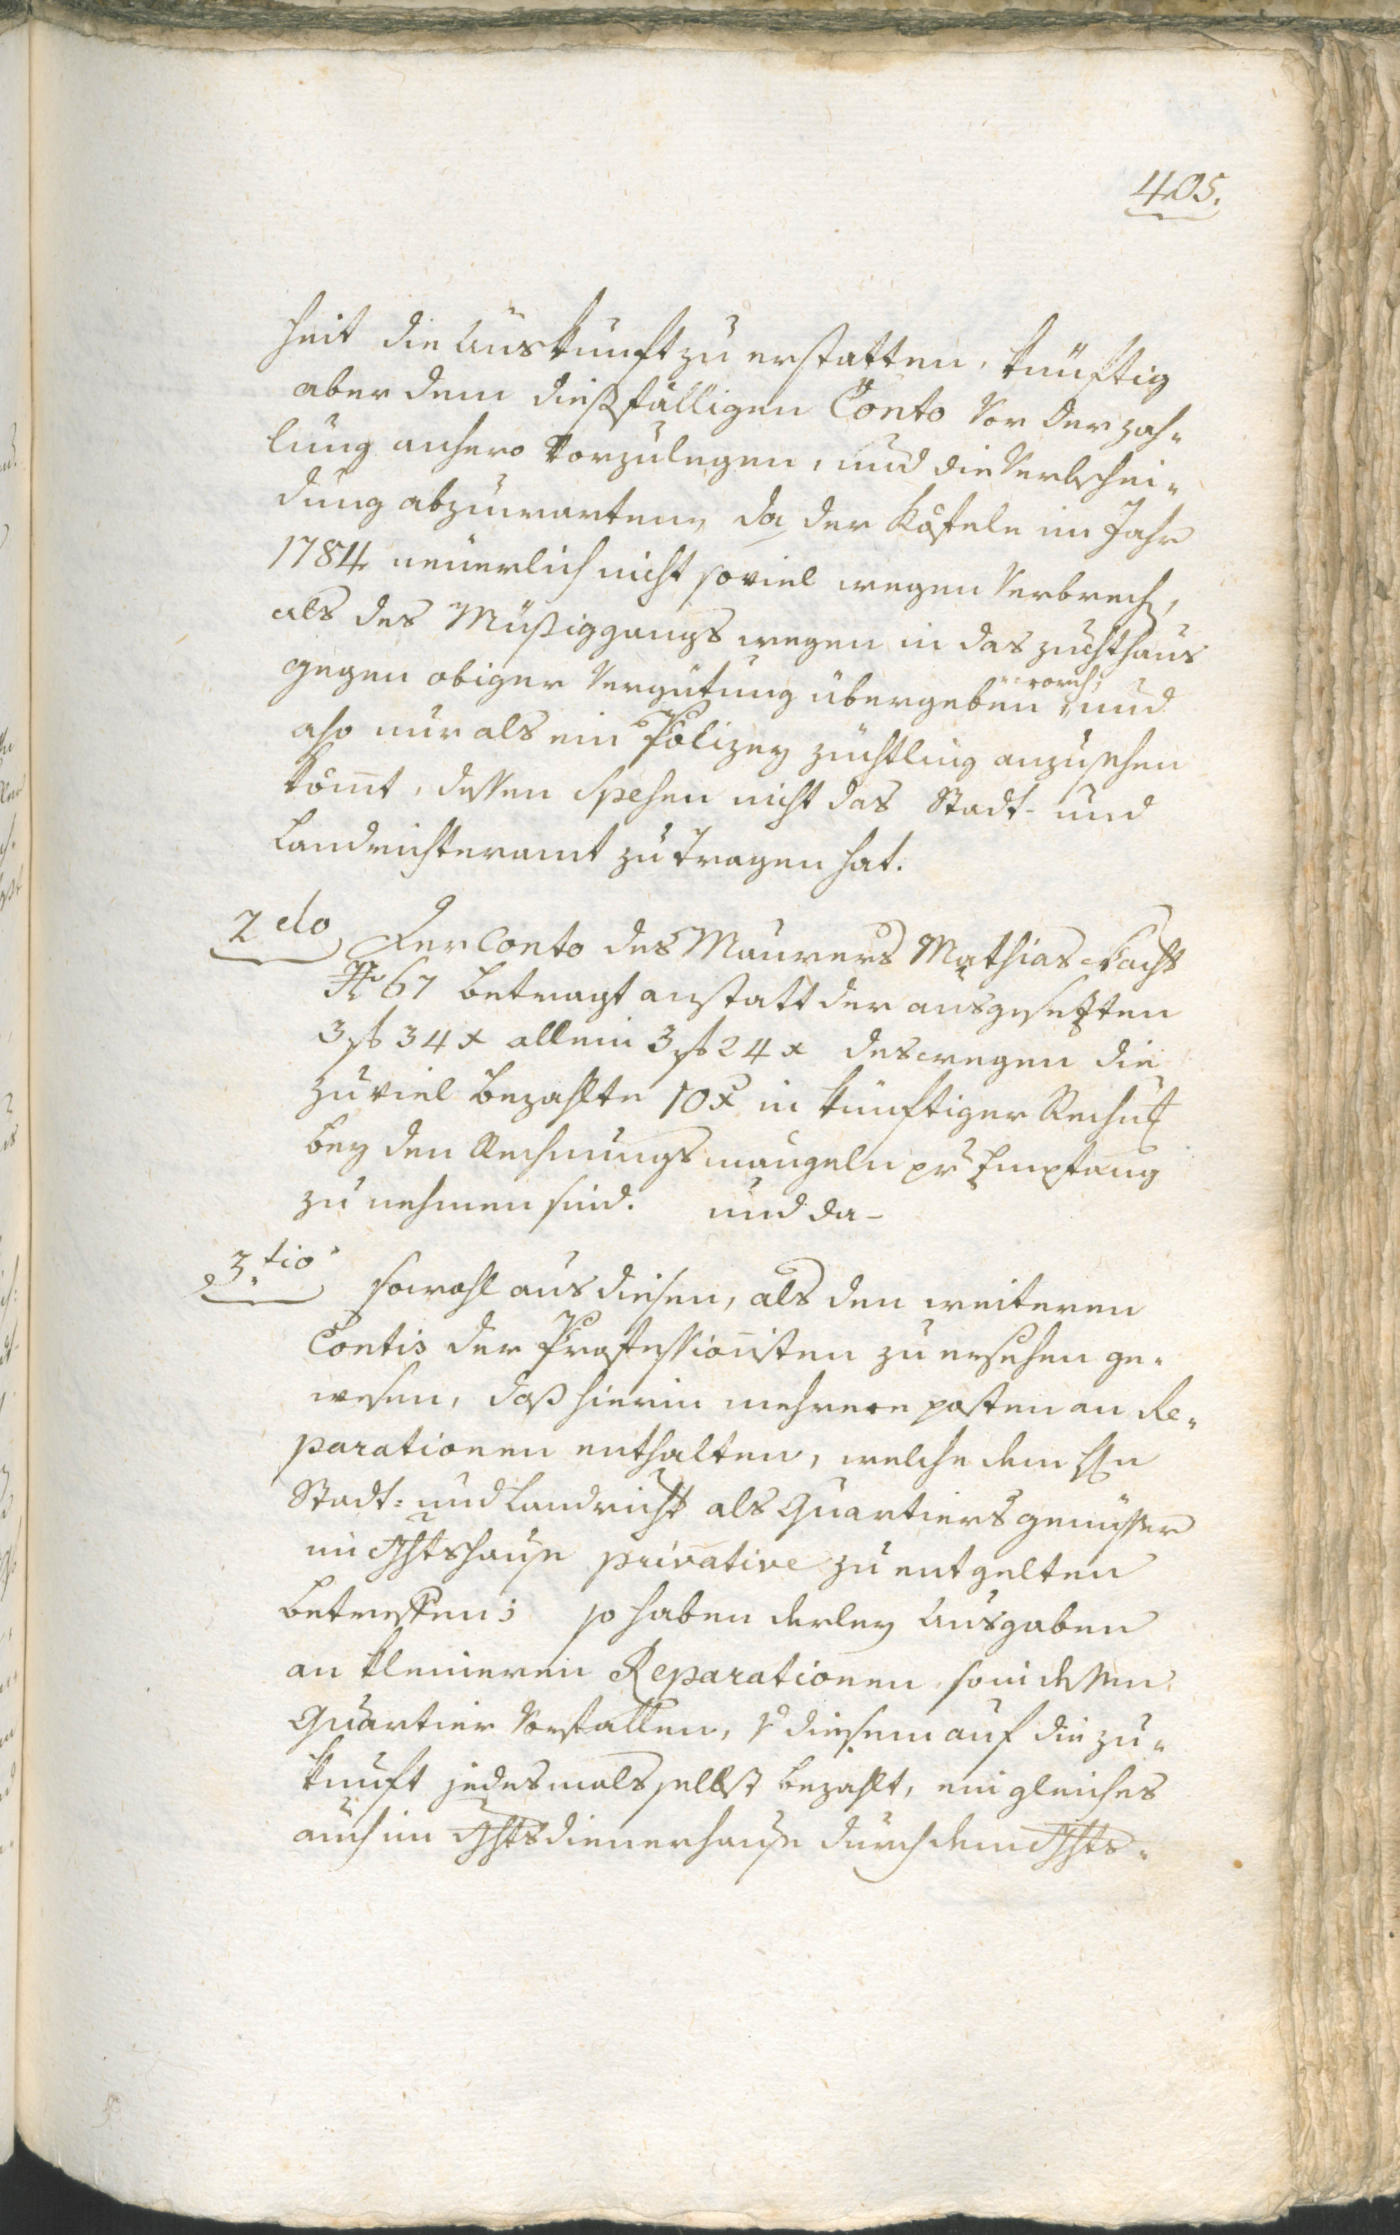 405.
heit die Auskunft zu erstatten, künftig
aber dem dießfälligen Conto vor der zah-
lung anhero vorzulegen, und die Verbschei-
dung abzuwarten, da der Kofele im Jahr
1784 neuerlich nicht soviel wegen Verbrech,
als des Müßiggangs wegen in das zuchthaus
gegen obiger Vergütung übergeben word, und
also nur als ein Polizey züchtling anzusehen
kom̄t, dessen Spesen nicht das Stadt- und
Landrichteramt zu tragen hat.
2do Der Conto des Maurers Mathias
No 67 betragt anstatt der ausgesezten
3 f 34 x allein 3 f 24 x deswegen die
zu viel bezahlte 10 x in künftiger Rechn͞g
bey den Rechnungs mängeln pr Empfang
zu nehmen sind. und da-
3tio sowohl aus diesen, als den weiteren
Contis der Professionisten zu ersehen ge-
wesen, daß hierin mehrere posten an Re-
parationen enthalten, welche dem Hn
Stadt- und Landricht als Quartiersgenüsser
im Ghtshause privative zu entgelten
betreffen; so haben derley Ausgaben
an kleineren Reparationen so in dessen
Quartier vorfallen, v diesem auf die zu-
kunft jedesmals selbst bezahlt, ein gleiches
auch im Ghtsdienerhause durch dem Ghts-